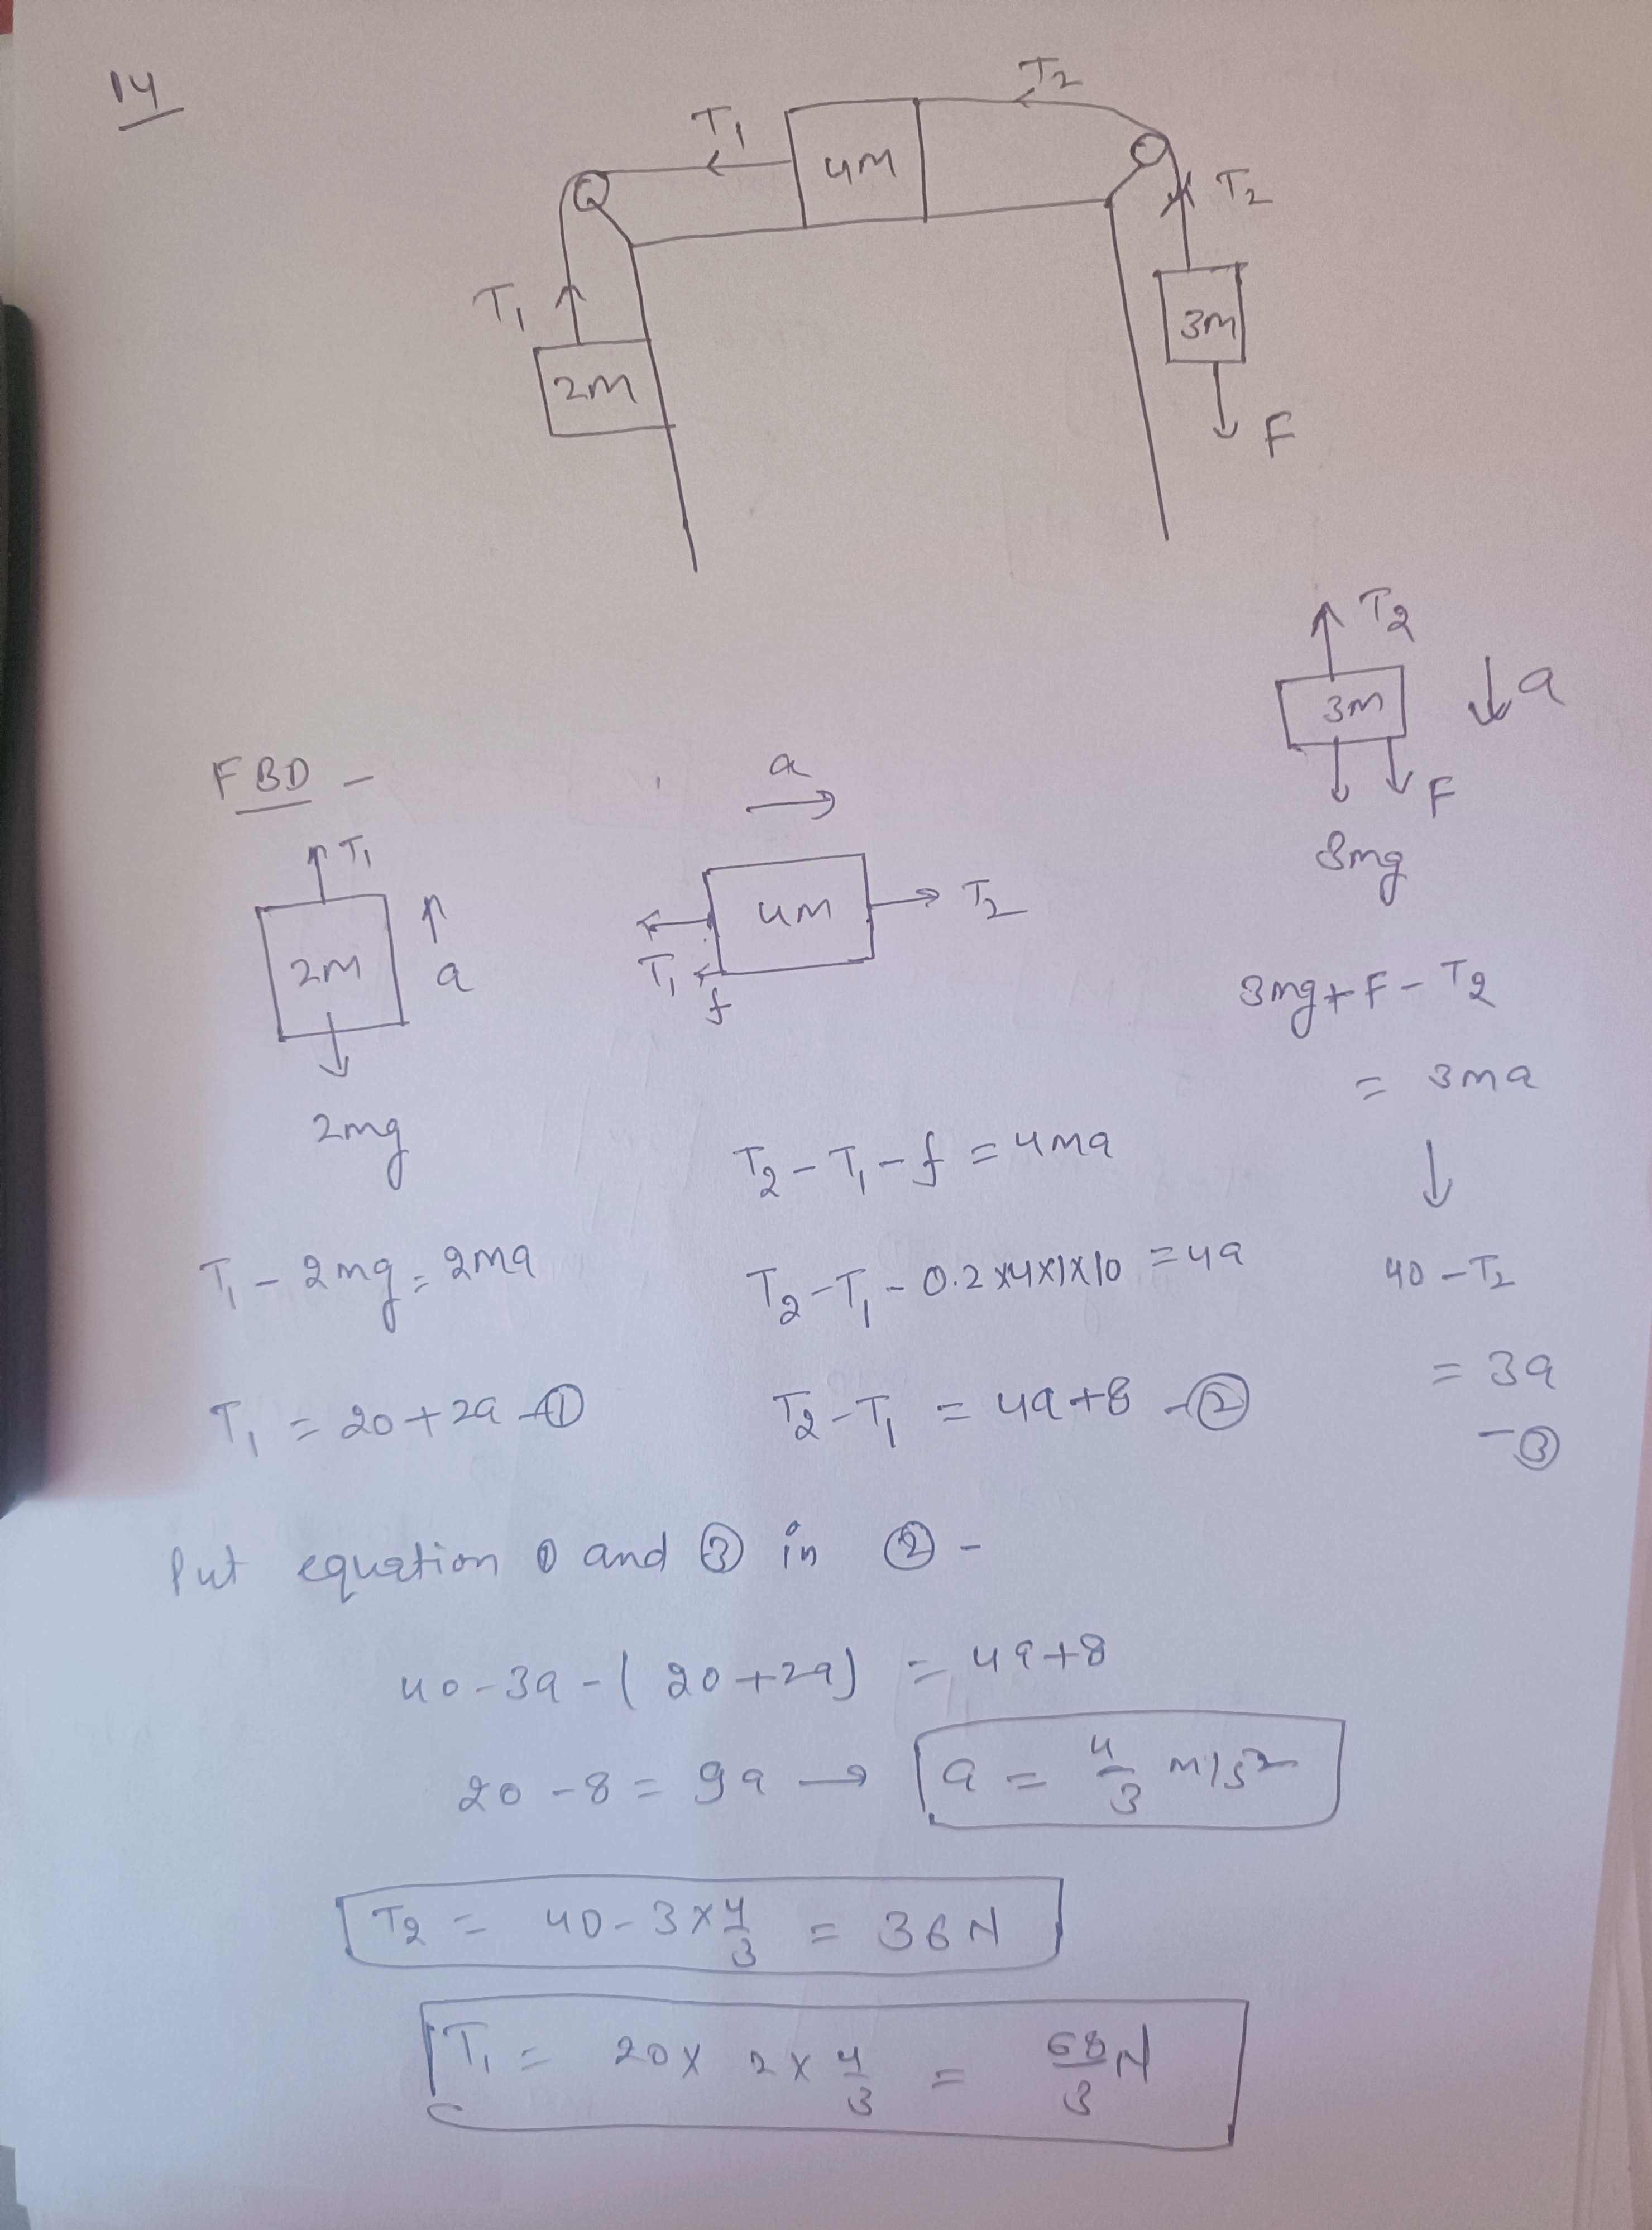 14
T2
T1
4M
T2
T1
3M
2M
F
T2
3M
a
FBD -
a
F
3mg
T1
2M
a
4M
T2
T1
f
3mg + F - T2
= 3ma
2mg
T2 - T1 - f = 4ma
T1 - 2mg = 2ma
T2 - T1 - 0.2 x4x1x10 = 4a
40 - T2
= 3a
T1 = 20 + 2a -①
T2 - T1 = 4a + 8 -②
-③
Put equation ① and ③ in ② -
40 - 3a - (20 + 2a) = 4a + 8
20 - 8 = 9a → a = 4/3 m/s²
T2 = 40 - 3 x 4/3 = 36 N
T1 = 20 x 2 x 4/3 = 68/3 N